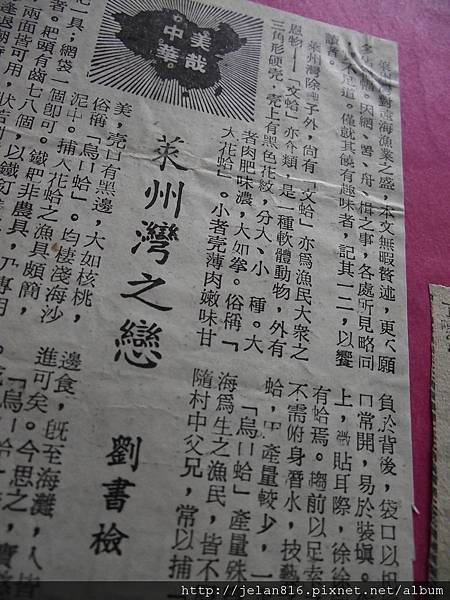 美哉
中華。
萊州灣之戀
劉書檢
海漁業之盛，本文無暇贅述，更不願
因網、罾、舟、楫之事，各處所見略同
道。僅就其饒有趣味者，記其一二，以饗
讀者。
萊州灣除 子外，尙有「文蛤」亦爲漁民大衆之
恩物——「文蛤」亦介類，是一種軟體動物，外有
三角形硬壳，壳上有黑色花紋，分大、小 種。大
者肉肥味濃，大如拳。俗稱「
大花蛤」。小者壳薄肉嫩味甘
美，壳口有黑邊，大如核桃，
俗稱「烏口蛤」。均棲淺海沙
泥中。捕大花蛤之漁具頗簡，
一具，網袋一個卽可。鐵耙非農具，
者。耙頭有齒七八個，以鐵釘
兩面皆可用，狀
負於背後，袋口以
口常開，易於裝塡。
上，微貼耳際，徐徐
有蛤焉。趨前以足索
不需俯身潛水，技藝
蛤， 產量較少，一
「烏口蛤」產量殊
海爲生之漁民，皆不
隨村中父兄，常以捕
邊食，旣至海灘，人皆
進可矣。今思之，
「烏口蛤
http://jelan816.pixnet.net/album